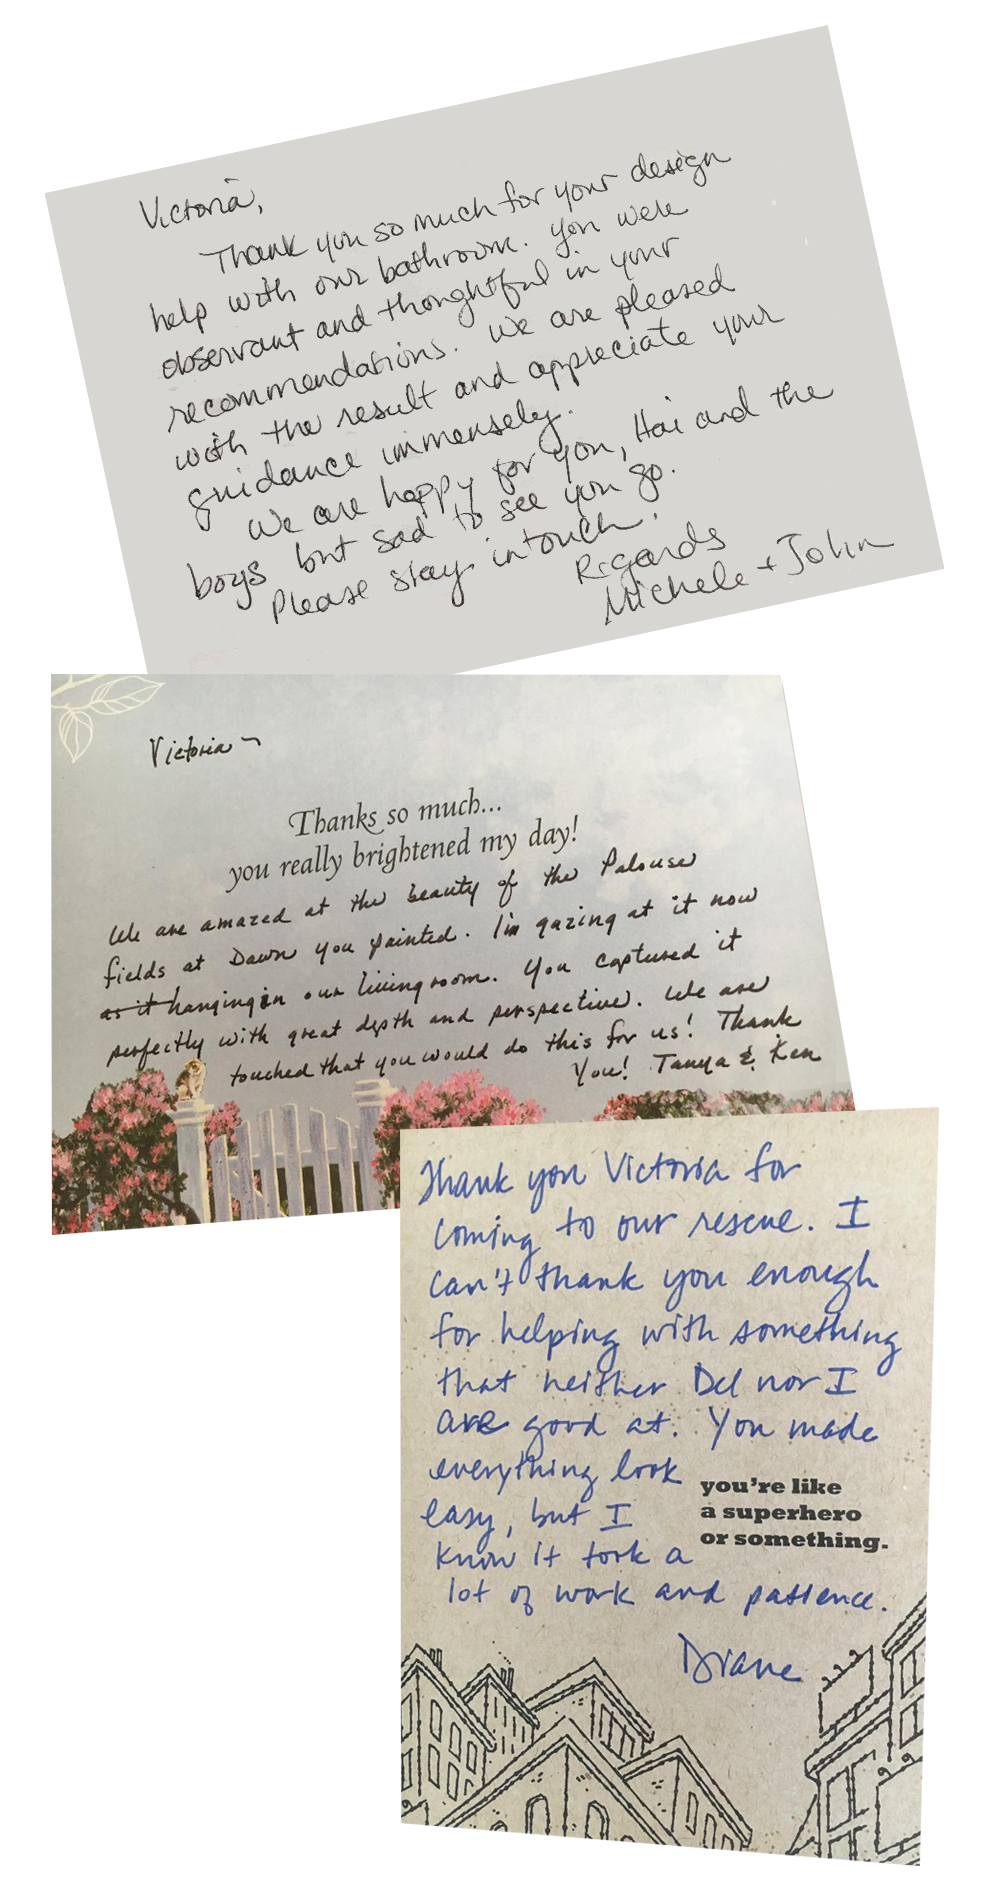 Victoria,
Thank you so much for your design
help with our bathroom. You were
observant and thoughtful in your
recommendations. We are pleased
with the result and appreciate your
guidance immensely.
We are happy for you, Hai and the
boys but sad to see you go.
Please stay in touch.
Regards
Michele + John
Victoria ~
Thanks so much...
you really brightened my day!
We are amazed at the beauty of the Palouse
fields at Dawn you painted. I'm gazing at it now
as it hanging in our living room. You captured it
perfectly with great depth and perspective. We are
touched that you would do this for us! Thank
You! Tanya & Ken
Thank you Victoria for
coming to our rescue. I
can't thank you enough
for helping with something
that neither Del nor I
are good at. You made
everything look
easy, but I
know it took a
lot of work and patience.
you're like
a superhero
or something.
Diane